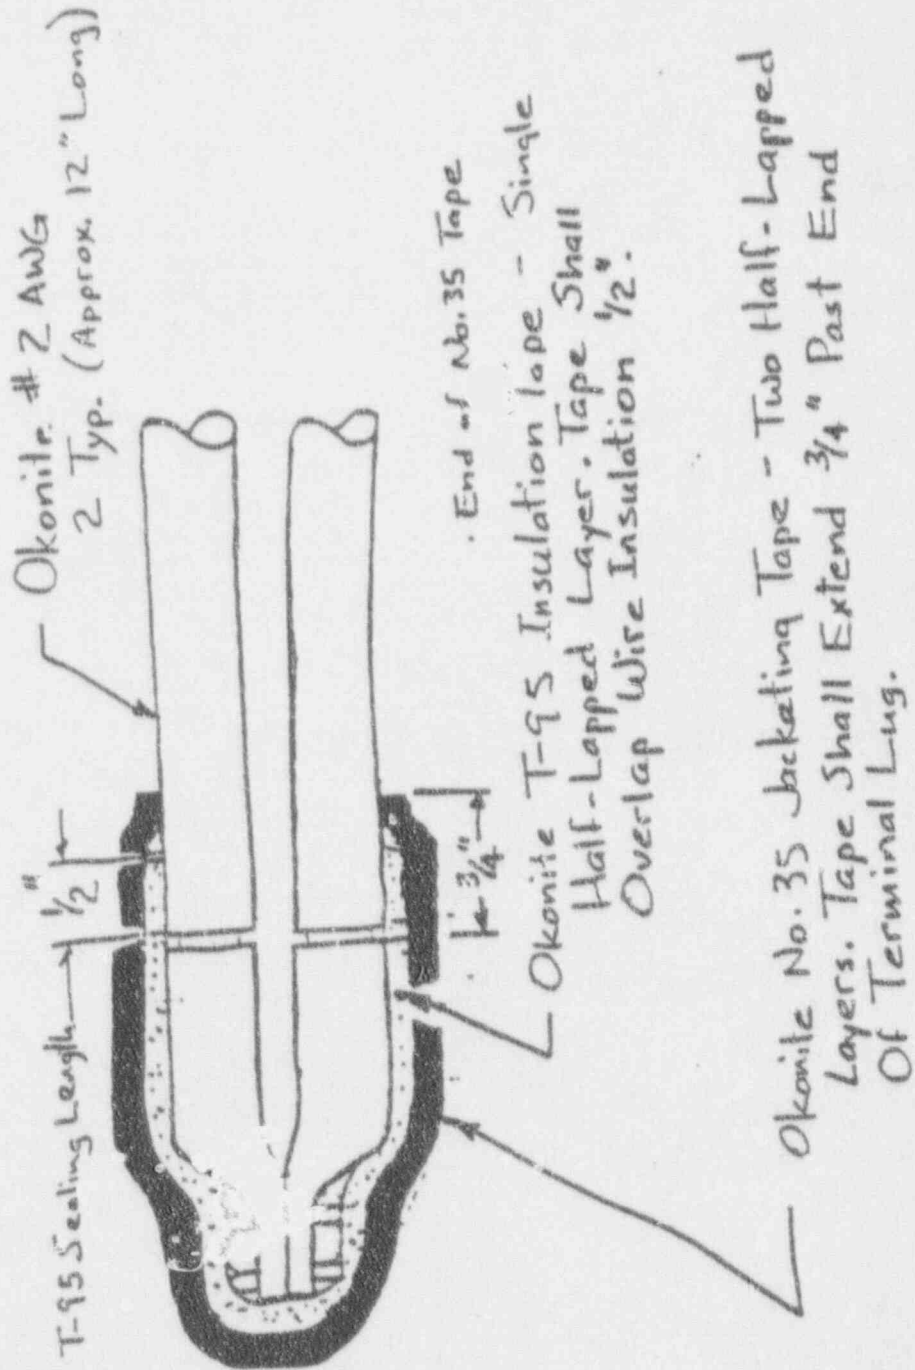 Okonite # 2 AWG
2 Typ. (Approx. 12" Long)
T-95 Sealing Length
1/2"
3/4"
End of No. 35 Tape
Okonite T-95 Insulation Tape - Single
Half-Lapped Layer. Tape Shall
Overlap Wire Insulation 1/2".
Okonite No. 35 Jacketing Tape - Two Half-Lapped
Layers. Tape Shall Extend 3/4" Past End
Of Terminal Lug.